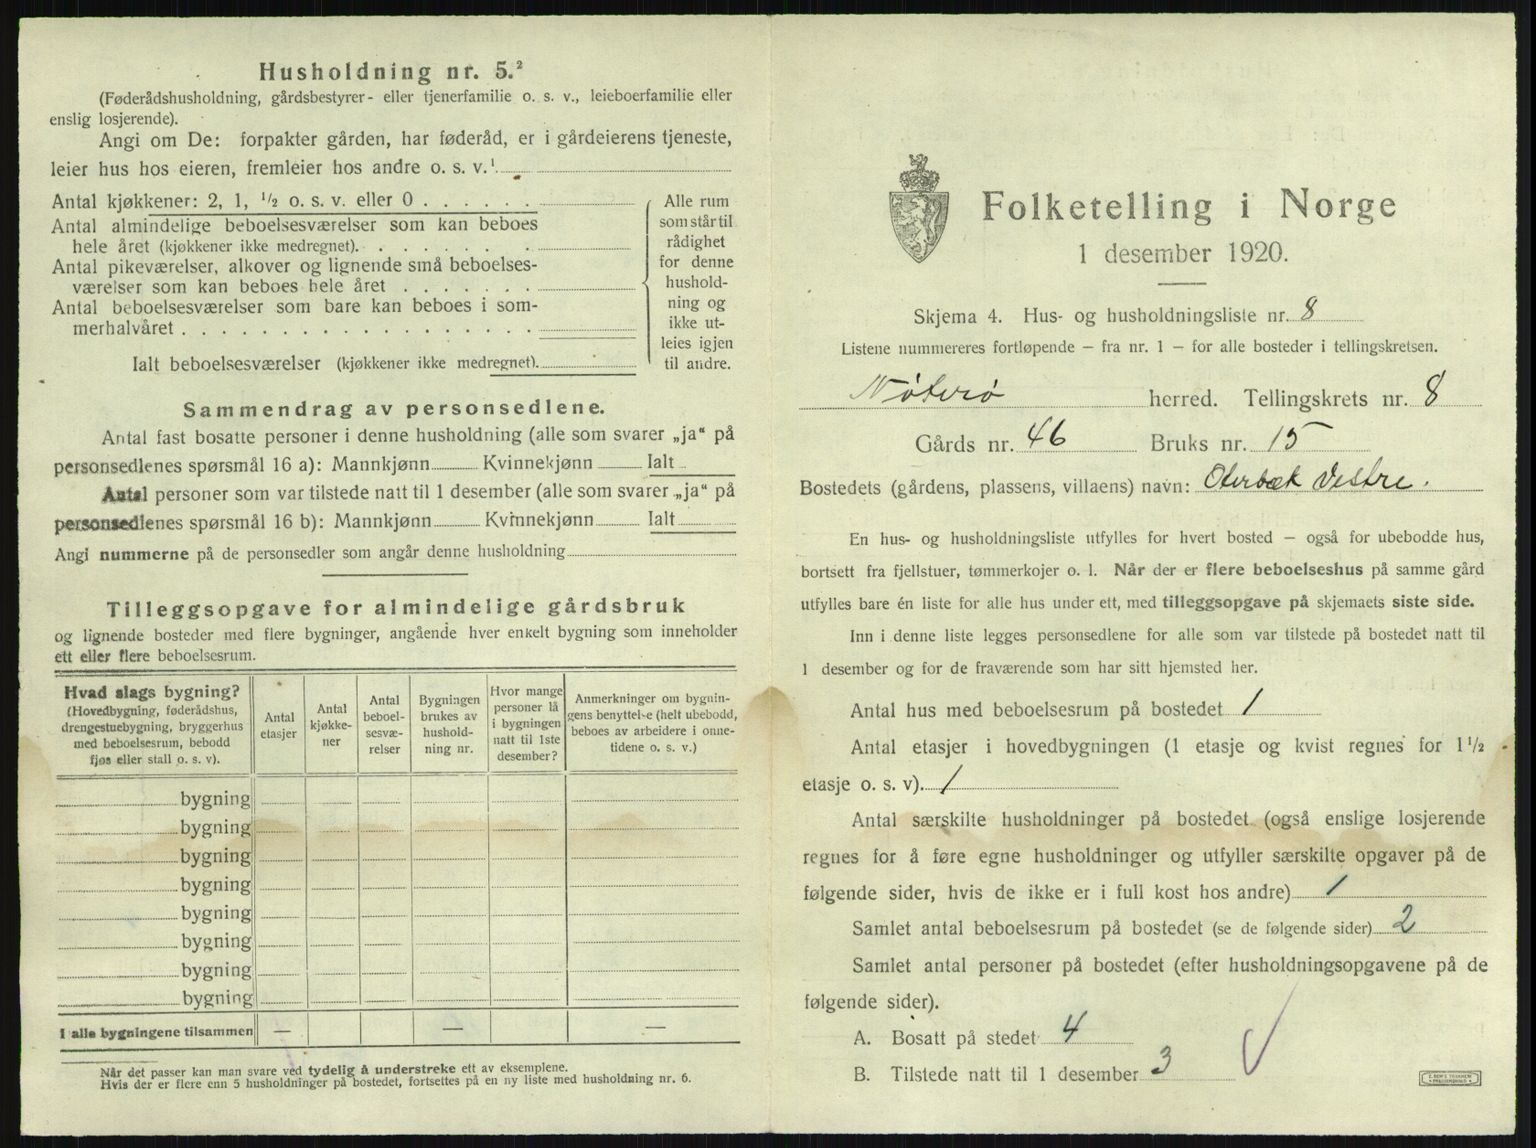 Husholdning nr. 5.²
(Føderådshusholdning, gårdsbestyrer- eller tjenerfamilie o. s. v., leieboerfamilie eller
enslig losjerende).
Angi om De: forpakter gården, har føderåd, er i gårdeierens tjeneste,
leier hus hos eieren, fremleier hos andre o. s. v.¹
Antal kjøkkener: 2, 1, ½ o. s. v. eller 0 . . . . . .
Antal almindelige beboelsesværelser som kan beboes
hele året (kjøkkener ikke medregnet). . . . . . . .
Antal pikeværelser, alkover og lignende små beboelses-
værelser som kan beboes hele året . . . . . . .
Antal beboelsesværelser som bare kan beboes i som-
merhalvåret . . . . . . . . . . . . . . . . . .
Ialt beboelsesværelser (kjøkkener ikke medregnet).
Alle rum
som står til
rådighet
for denne
hushold-
ning og
ikke ut-
leies igjen
til andre.
Sammendrag av personsedlene.
Antal fast bosatte personer i denne husholdning (alle som svarer „ja“ på
personsedlenes spørsmål 16 a): Mannkjønn Kvinnekjønn Ialt
Antal personer som var tilstede natt til 1 desember (alle som svarer „ja“ på
personsedlenes spørsmål 16 b): Mannkjønn Kvinnekjønn Ialt
Angi nummerne på de personsedler som angår denne husholdning
Tilleggsopgave for almindelige gårdsbruk
og lignende bosteder med flere bygninger, angående hver enkelt bygning som inneholder
ett eller flere beboelsesrum.
Hvad slags bygning?
(Hovedbygning, føderådshus,
drengestuebygning, bryggerhus
med beboelsesrum, bebodd
fjøs eller stall o. s. v).
Antal
etasjer
Antal
kjøkke-
ner
Antal
beboel-
sesvæ-
relser
Bygningen
brukes av
hushold-
ning nr.
Hvor mange
personer lå
i bygningen
natt til 1ste
desember?
Anmerkninger om bygnin-
gens benyttelse (helt ubebodd,
beboes av arbeidere i onne-
tidene o. s. v.)
bygning
bygning
bygning
bygning
bygning
bygning
bygning
bygning
I alle bygningene tilsammen — — —
Når det passer kan man svare ved tydelig å understreke ett av eksemplene.
Hvis der er flere enn 5 husholdninger på bostedet, fortsettes på en ny liste med husholdning nr. 6.
Folketelling i Norge
1 desember 1920.
Skjema 4. Hus- og husholdningsliste nr. 8
Listene nummereres fortløpende – fra nr. 1 – for alle bosteder i tellingskretsen.
Nøterø herred. Tellingskrets nr. 8
Gårds nr. 46 Bruks nr. 15
Bostedets (gårdens, plassens, villaens) navn: Oterbæk Vestre.
En hus- og husholdningsliste utfylles for hvert bosted – også for ubebodde hus,
bortsett fra fjellstuer, tømmerkojer o. l. Når der er flere beboelseshus på samme gård
utfylles bare én liste for alle hus under ett, med tilleggsopgave på skjemaets siste side.
Inn i denne liste legges personsedlene for alle som var tilstede på bostedet natt til
1 desember og for de fraværende som har sitt hjemsted her.
Antal hus med beboelsesrum på bostedet 1
Antal etasjer i hovedbygningen (1 etasje og kvist regnes for 1½
etasje o. s. v). 1
Antal særskilte husholdninger på bostedet (også enslige losjerende
regnes for å føre egne husholdninger og utfyller særskilte opgaver på de
følgende sider, hvis de ikke er i full kost hos andre) 1
Samlet antal beboelsesrum på bostedet (se de følgende sider) 2
Samlet antal personer på bostedet (efter husholdningsopgavene på de
følgende sider).
A. Bosatt på stedet 4
B. Tilstede natt til 1 desember 3